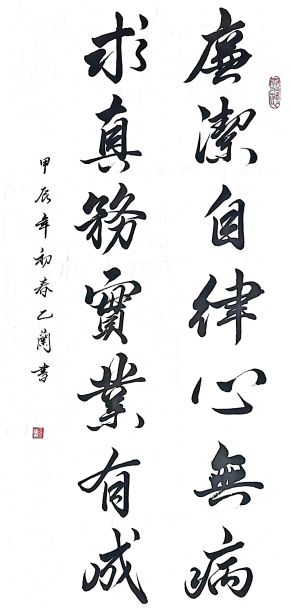 廉潔自律心無病
求真務實業有成
甲辰年初春乙蘭書